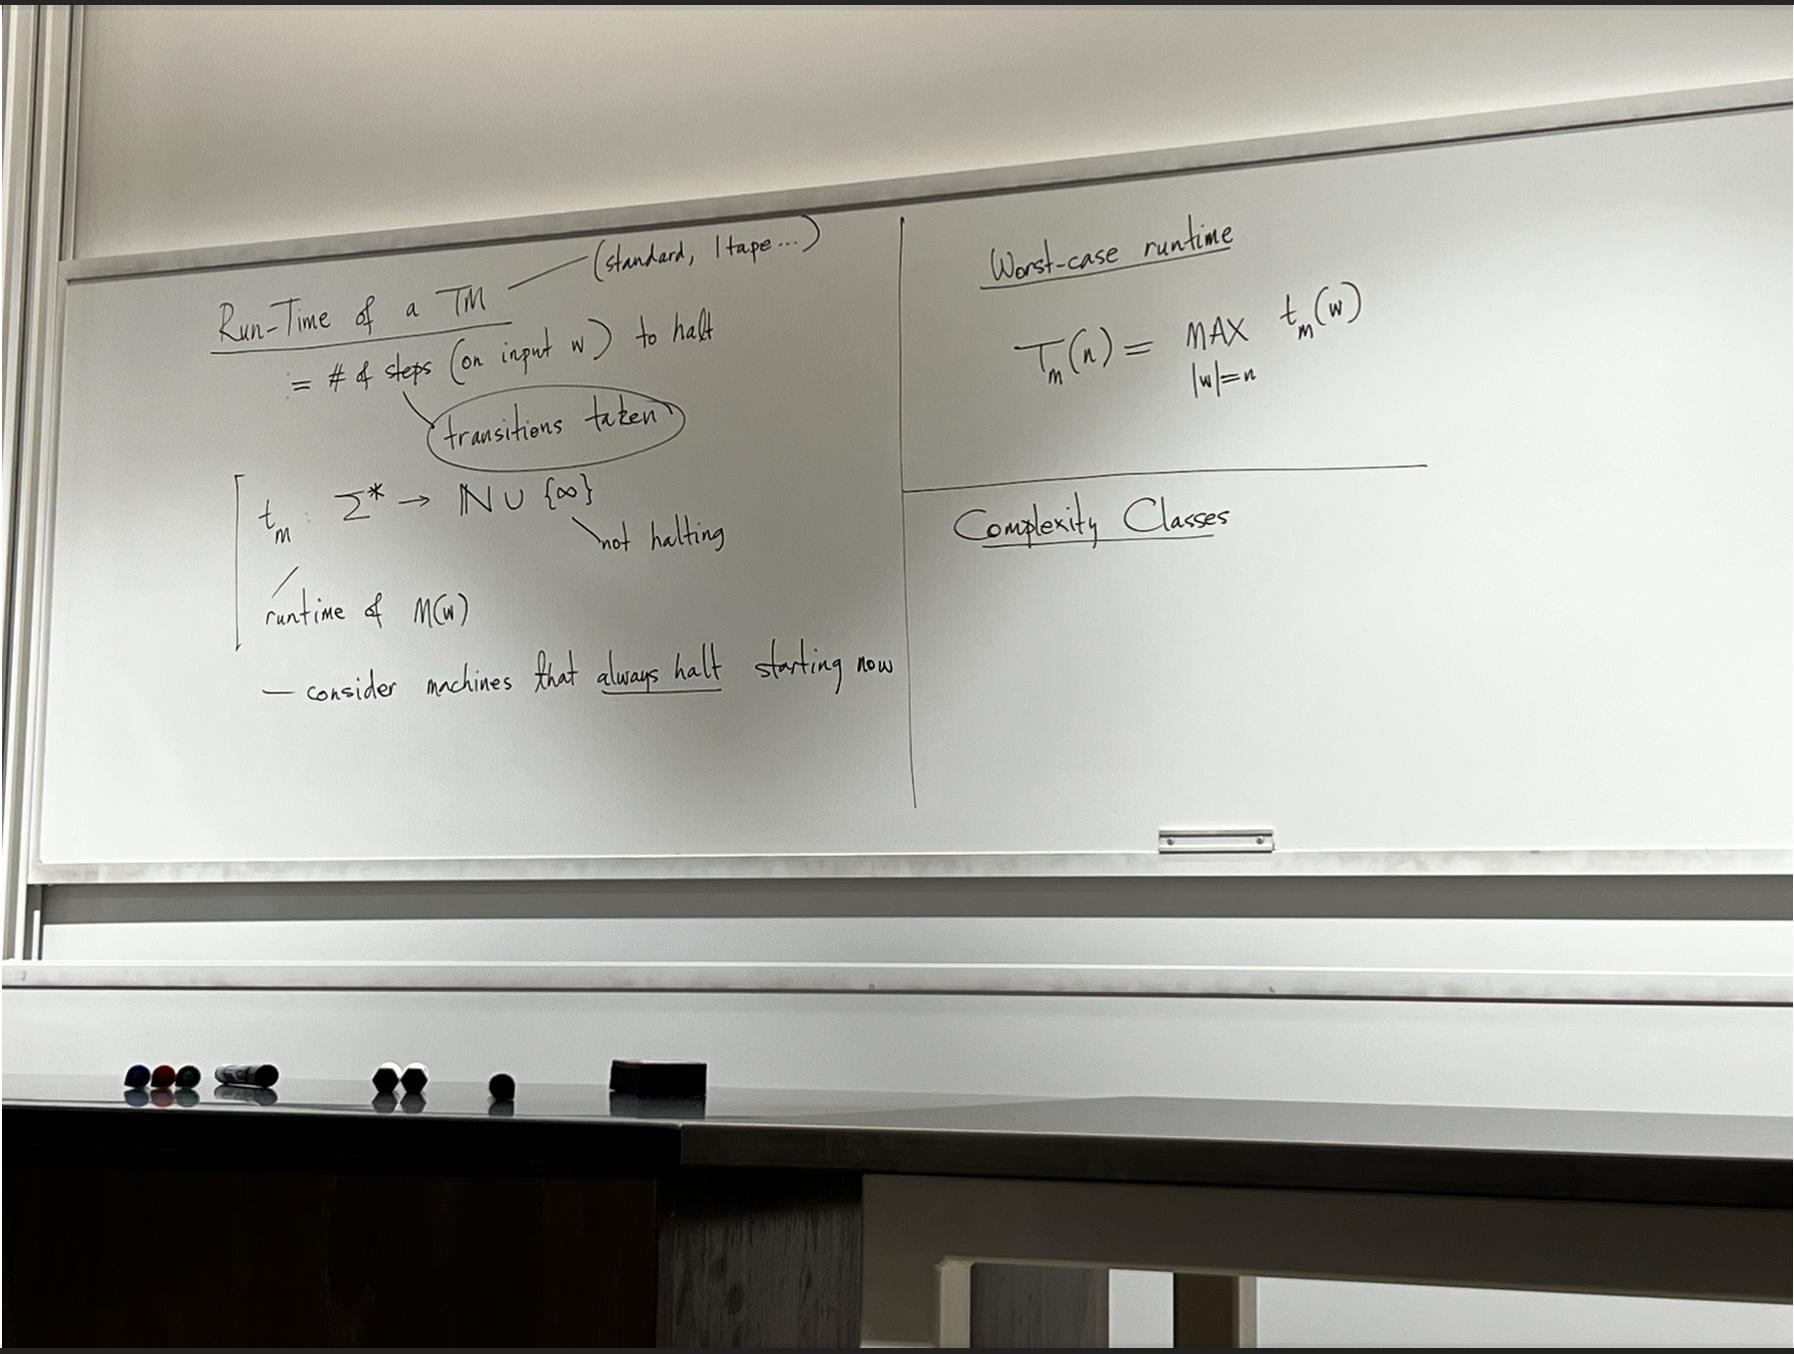 Run-Time of a TM (standard, 1 tape...)
= # of steps (on input w) to halt
transitions taken
t_M : Σ* → ℕ ∪ {∞}
not halting
runtime of M(w)
— consider machines that always halt starting now
Worst-case runtime
T_M(n) = MAX t_M(w)
|w|=n
Complexity Classes